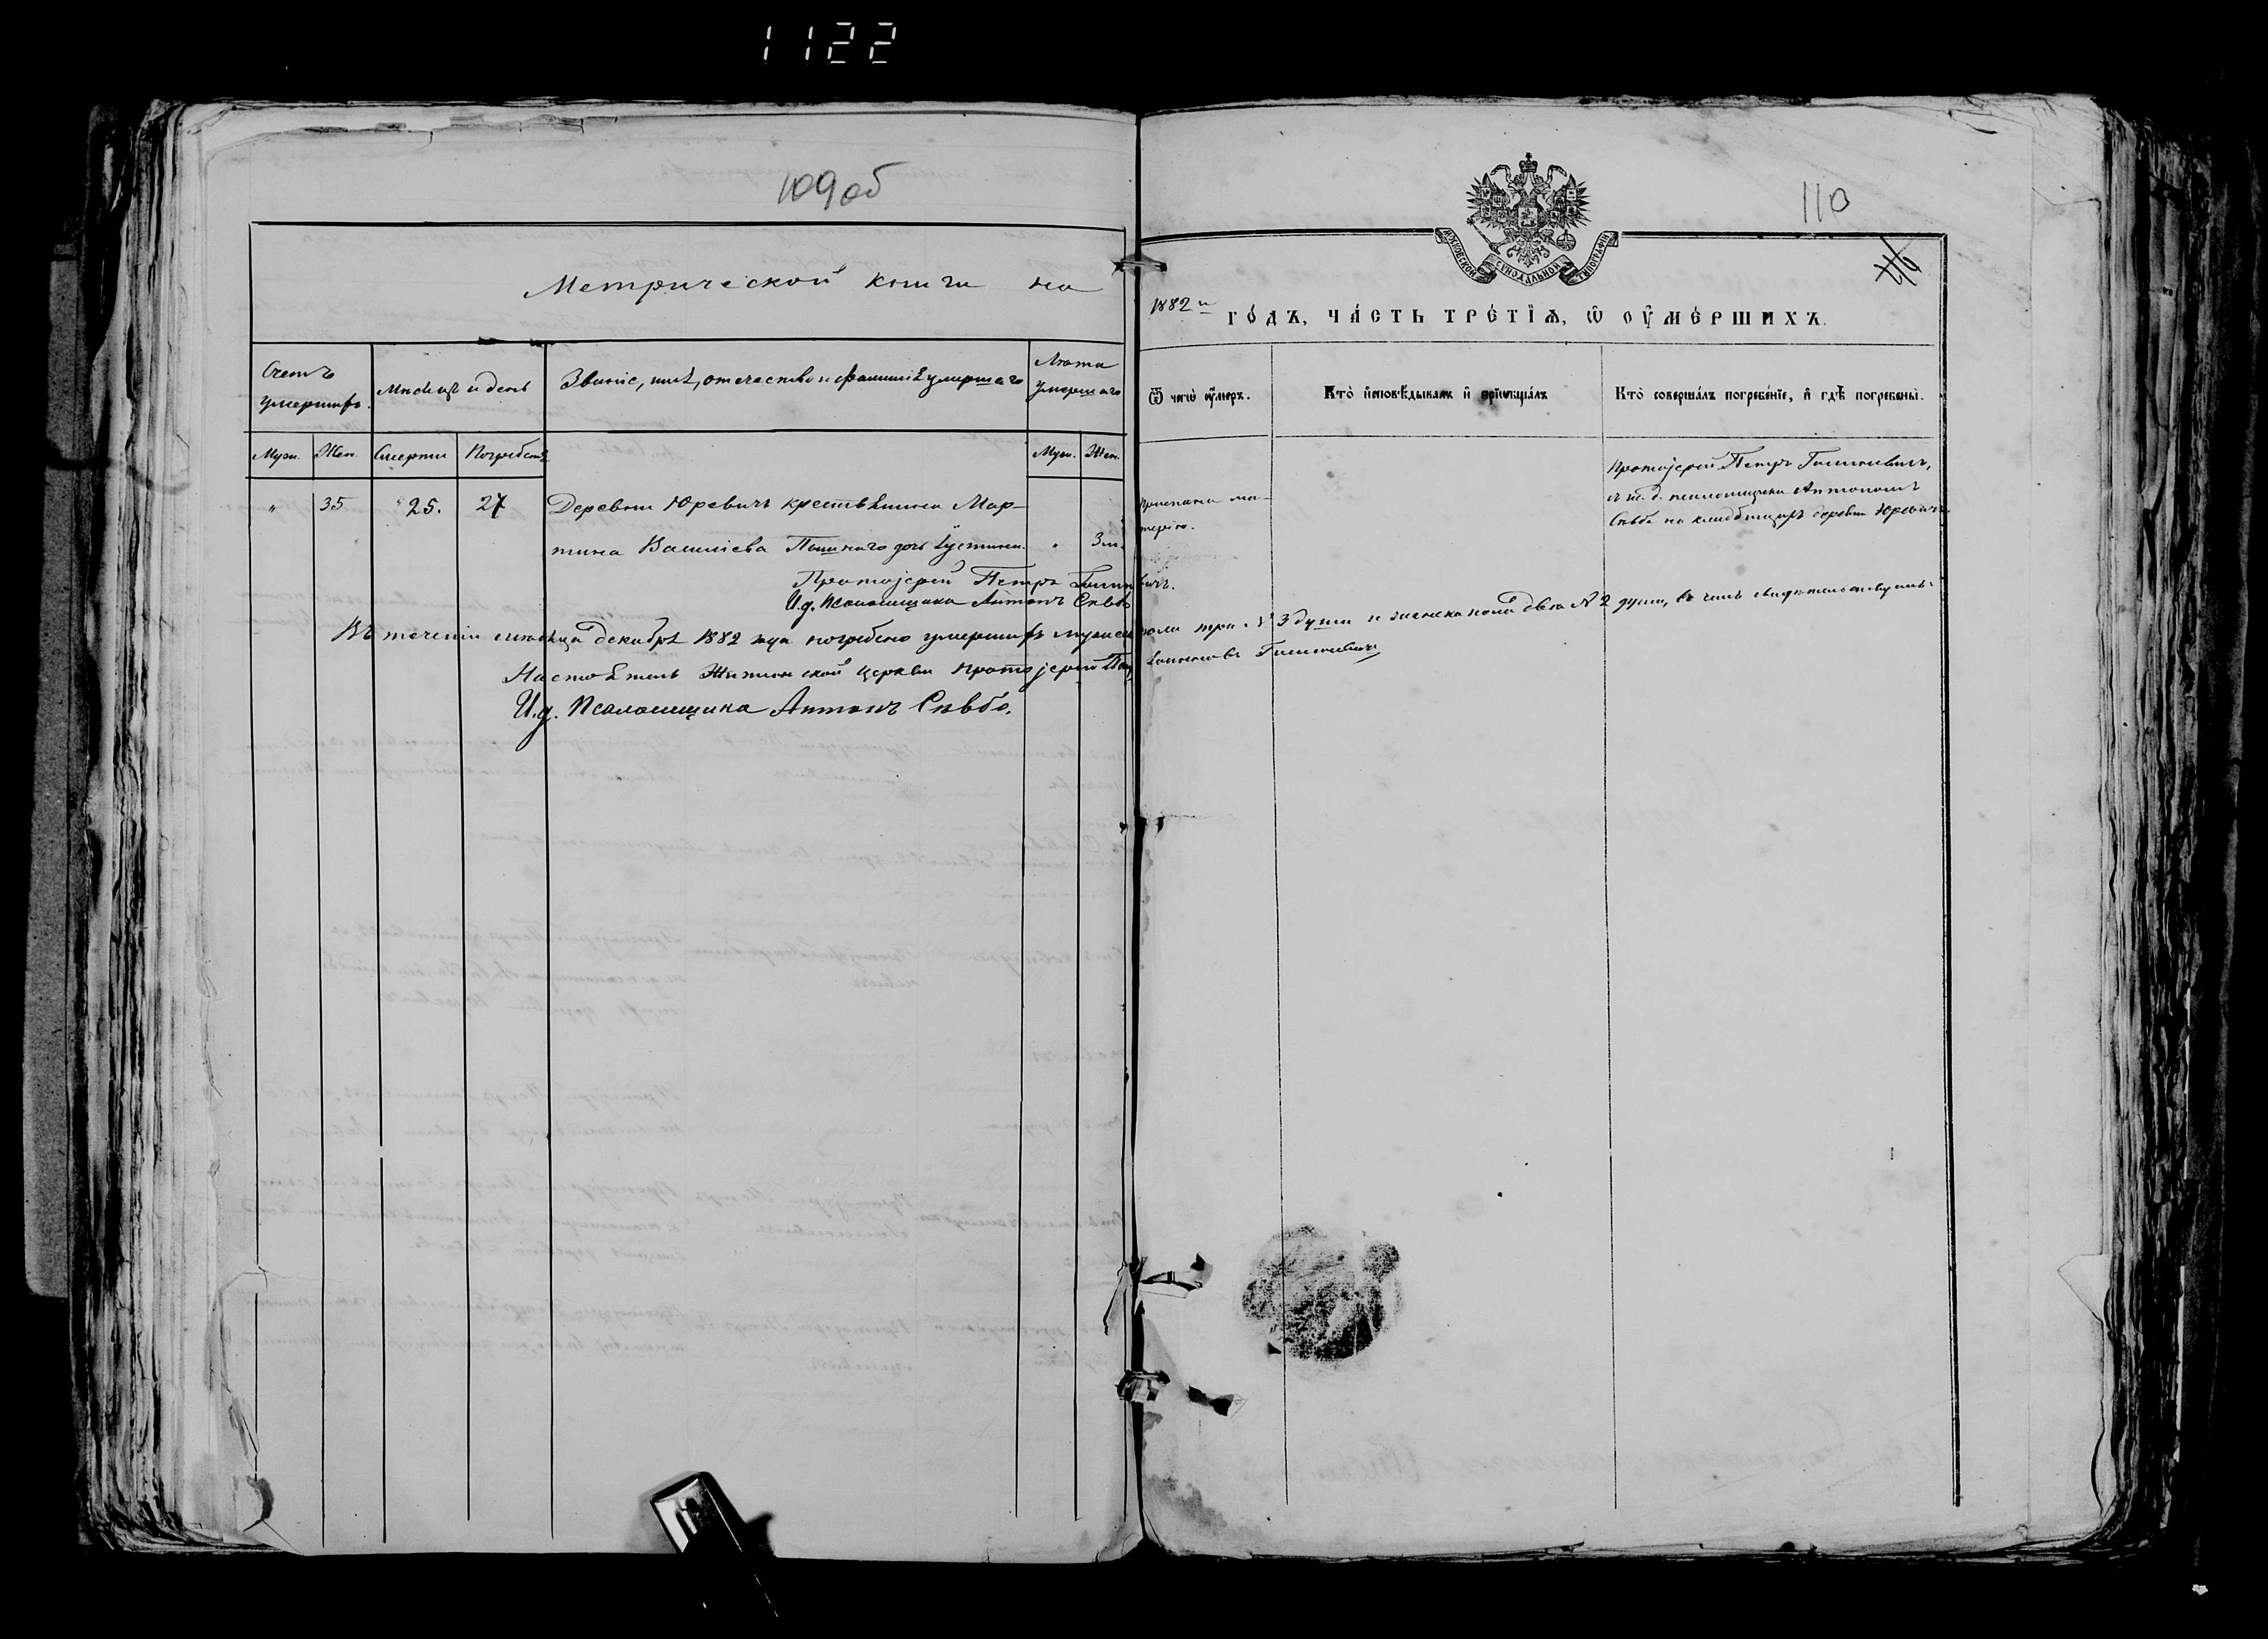 1122
109 об
110
Метрической книги на
1882 й
МОСКОВСКОЙ СѴНОДАЛЬНОЙ ТИПОГРАФІИ
го́дъ, ча́сть тре́тїѧ, ѡ҆ оу҆ме́ршихъ.
Счетъ умершихъ.
Мѣсяцъ и день
Званіе, имя, отечество и фамилія умершаго
Лѣта умершаго
Ѿ чегѡ̀ оу҆́меръ.
Кто̀ и҆сповѣ́дывалъ и҆ прїѡбща́лъ
Кто̀ соверша́лъ погребе́нїе, и҆ гдѣ̀ погребены̀.
Муж.
Жен.
Смерти
Погребенія
Муж.
Жен.
"
35
25.
27
Деревни Юревичъ крестьянина Мар-
тина Василіева дочь Іустина.
3 м.
Приспана ма-
терію.
Протоіерей Петръ
и. д. псаломщика Антономъ
Съвба на кладбищѣ деревни Юревичъ.
Протоіерей Петръ
И.д. Псаломщика Антонъ Съвба
Въ теченіи мѣсяца декабря 1882 года погребено умершихъ мужеска пола три № 3 души и женска пола два № 2 души, въ чемъ свидѣтельствуемъ:
Настоятель Житинской церкви Протоіерей
И.д. Псаломщика Антонъ Съвба.